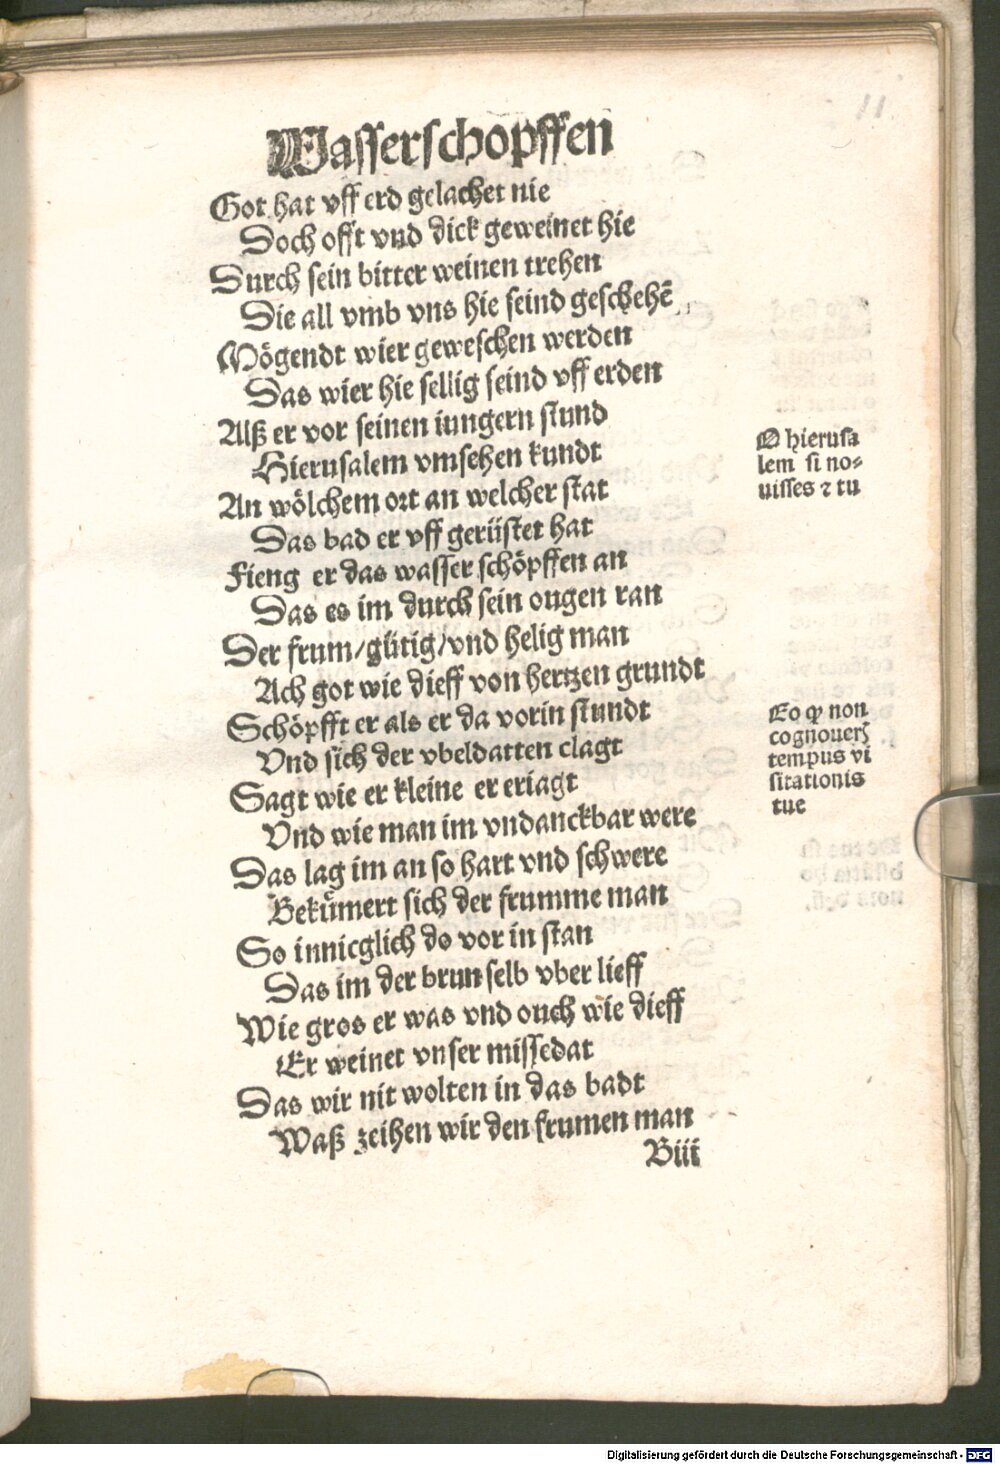 11
Wasserschopffen
Got hat vff erd gelachet nie
Doch offt vnd dick geweinet hie
Durch sein bitter weinen trehen
Die all vmb vns hie seind geschehē
Mögendt wier geweschen werden
Das wier hie sellig seind vff erden
Alß er vor seinen iungern stund
Hierusalem vmsehen kundt
An wölchem ort an welcher stat
Das bad er vff gerüstet hat
Fieng er das wasser schöpffen an
Das es im durch sein ougen ran
Der frum/gütig/vnd helig man
Ach got wie dieff von hertzen grundt
Schöpfft er als er da vorin stundt
Vnd sich der vbeldatten clagt
Sagt wie er kleine er eriagt
Vnd wie man im vndanckbar were
Das lag im an so hart vnd schwere
Bekümert sich der frumme man
So innicglich do vor in stan
Das im der brun selb vber lieff
Wie gros er was vnd ouch wie dieff
Er weinet vnser missedat
Das wir nit wolten in das badt
Waß zeihen wir den frumen man
Biii
O hierusa
lem si no⸗
uisses ⁊ tu
Eo ꝙ non
cognouerꝭ
tempus vi
sitationis
tue
Digitalisierung gefördert durch die Deutsche Forschungsgemeinschaft - DFG